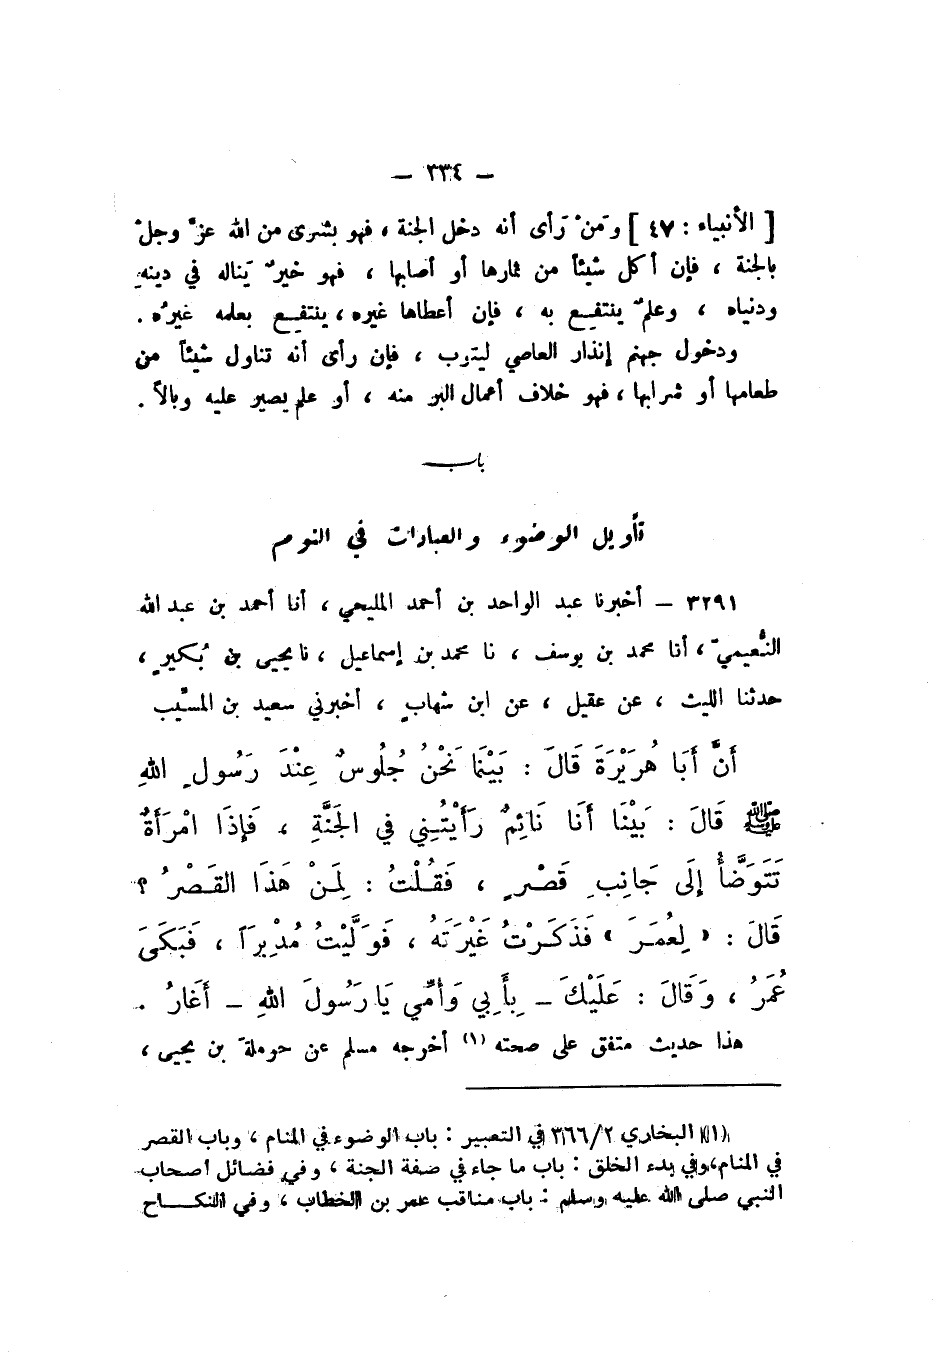 — ٣٣٤ —
[ الأنبياء : ٤٧ ] ومَنْ رَأى أنه دخل الجنة ، فهو بشرى من الله عزّ وجلّ
بالجنة ، فإن أكل شيئاً من ثمارها أو أصابها ، فهو خيرٌ يناله في دينهِ
ودنياه ، وعلمٌ ينتفع به ، فإن أعطاها غيره ، ينتفع بعلمه غيرُه .
ودخول جهنم إنذار العاصي ليتوب ، فإن رأى أنه تناول شيئاً من
طعامها أو شرابها ، فهو خلاف أعمال البر منه ، أو علم يصير عليه وبالاً .
باب
تأويل الوضوء والعبادات في النوم
٣٢٩١ — أخبرنا عبد الواحد بن أحمد المليحي ، أنا أحمد بن عبد الله
النُّعيميّ ، أنا محمد بن يوسف ، نا محمد بن إسماعيل ، نا يحيى بن بُكيرٍ ،
حدثنا الليث ، عن عقيل ، عن ابن شهابٍ ، أخبرني سعيد بن المسيّب
أَنَّ أَبَا هُرَيْرَةَ قَالَ : بَيْنَمَا نَحْنُ جُلُوسٌ عِنْدَ رَسُولِ اللهِ
ﷺ قَالَ : بَيْنَا أَنَا نَائِمٌ رَأَيْتُنِي فِي الجَنَّةِ ، فَإِذَا امْرَأَةٌ
تَتَوَضَّأُ إِلَى جَانِبِ قَصْرٍ ، فَقُلْتُ : لِمَنْ هَذَا القَصْرُ ؟
قَالَ : « لِعُمَرَ » فَذَكَرْتُ غَيْرَتَهُ ، فَوَلَّيْتُ مُدْبِرَاً ، فَبَكَى
عُمَرُ ، وَقَالَ : عَلَيْكَ – بِأَبِي وَأُمِّي يَا رَسُولَ اللهِ – أَغَارُ .
هذا حديث متفق على صحته (١) أخرجه مسلم عن حرملةَ بن يحيى ،
(١) البخاري ٣٦٦/٢ في التعبير : باب الوضوء في المنام ، وباب القصر
في المنام، وفي بدء الخلق : باب ما جاء في صفة الجنة ، وفي فضائل أصحاب
النبي صلى الله عليه وسلم : باب مناقب عمر بن الخطاب ، وفي النكاح